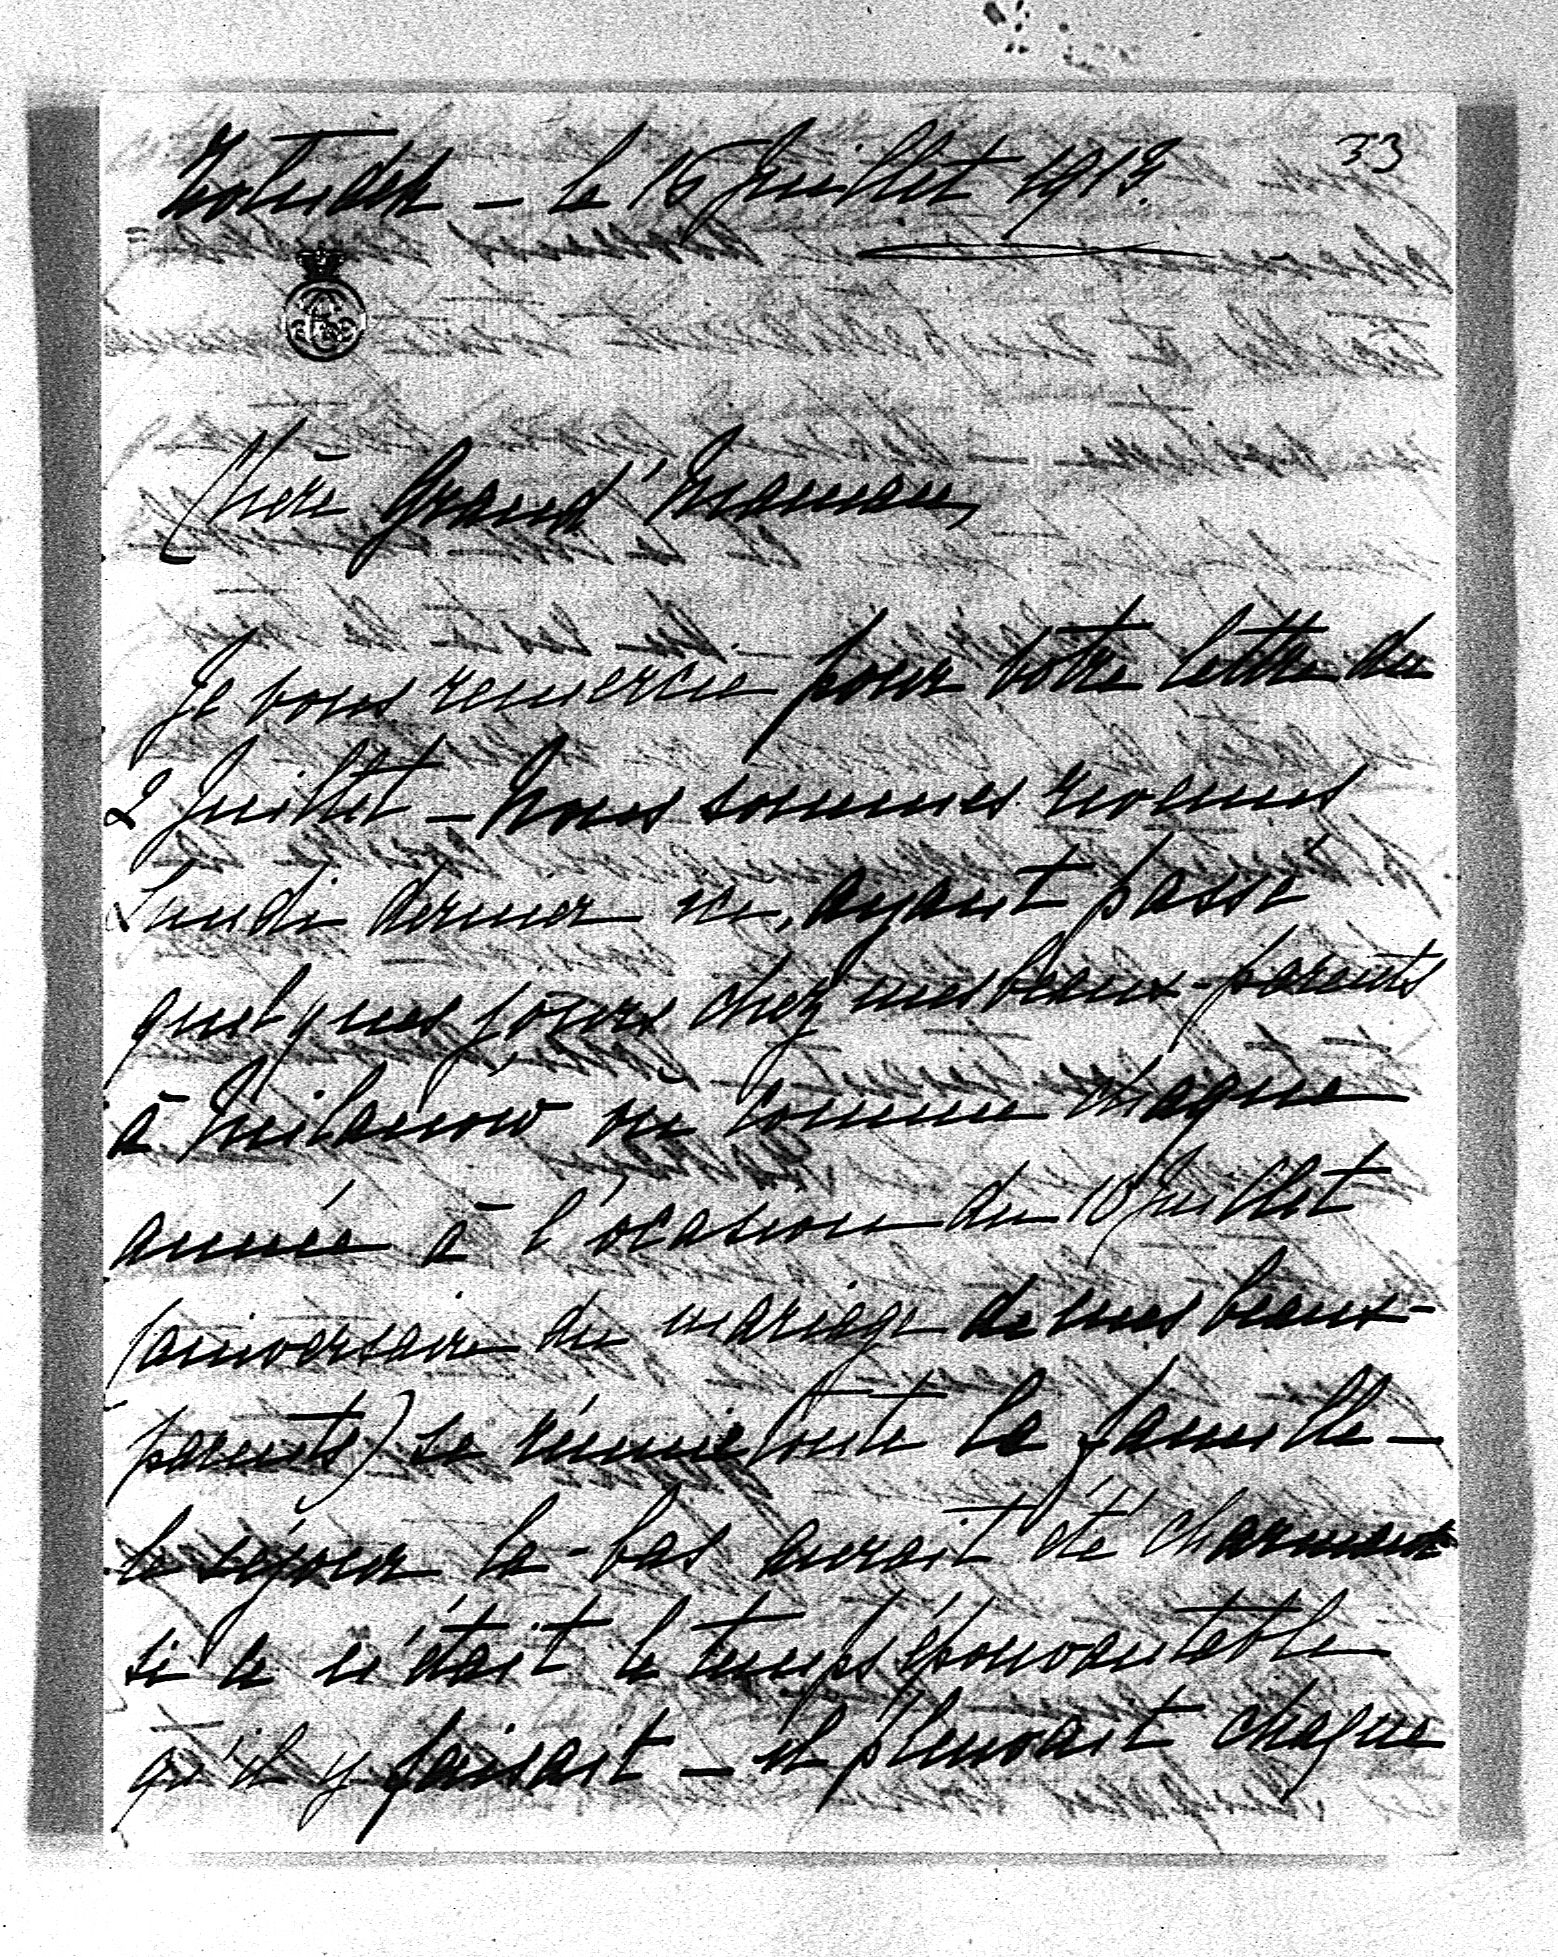 33
Żołudek – le 15 Juillet 1913.
Chère Grand'Maman,
Je vous remercie pour votre lettre du
2 Juillet – Nous sommes revenus
Lundi dernier ici, ayant passé
quelques jours chez mes beaux-parents
à Milanów où comme chaque
année à l'ocasion du 10 Juillet
(aniversaire du mariage de mes beaux-
parents) se réunie toute la famille –
le séjour là-bas aurait été charmant
si ce n'était le temps épouvantable
qu'il y faisait – il pleuvait chaque